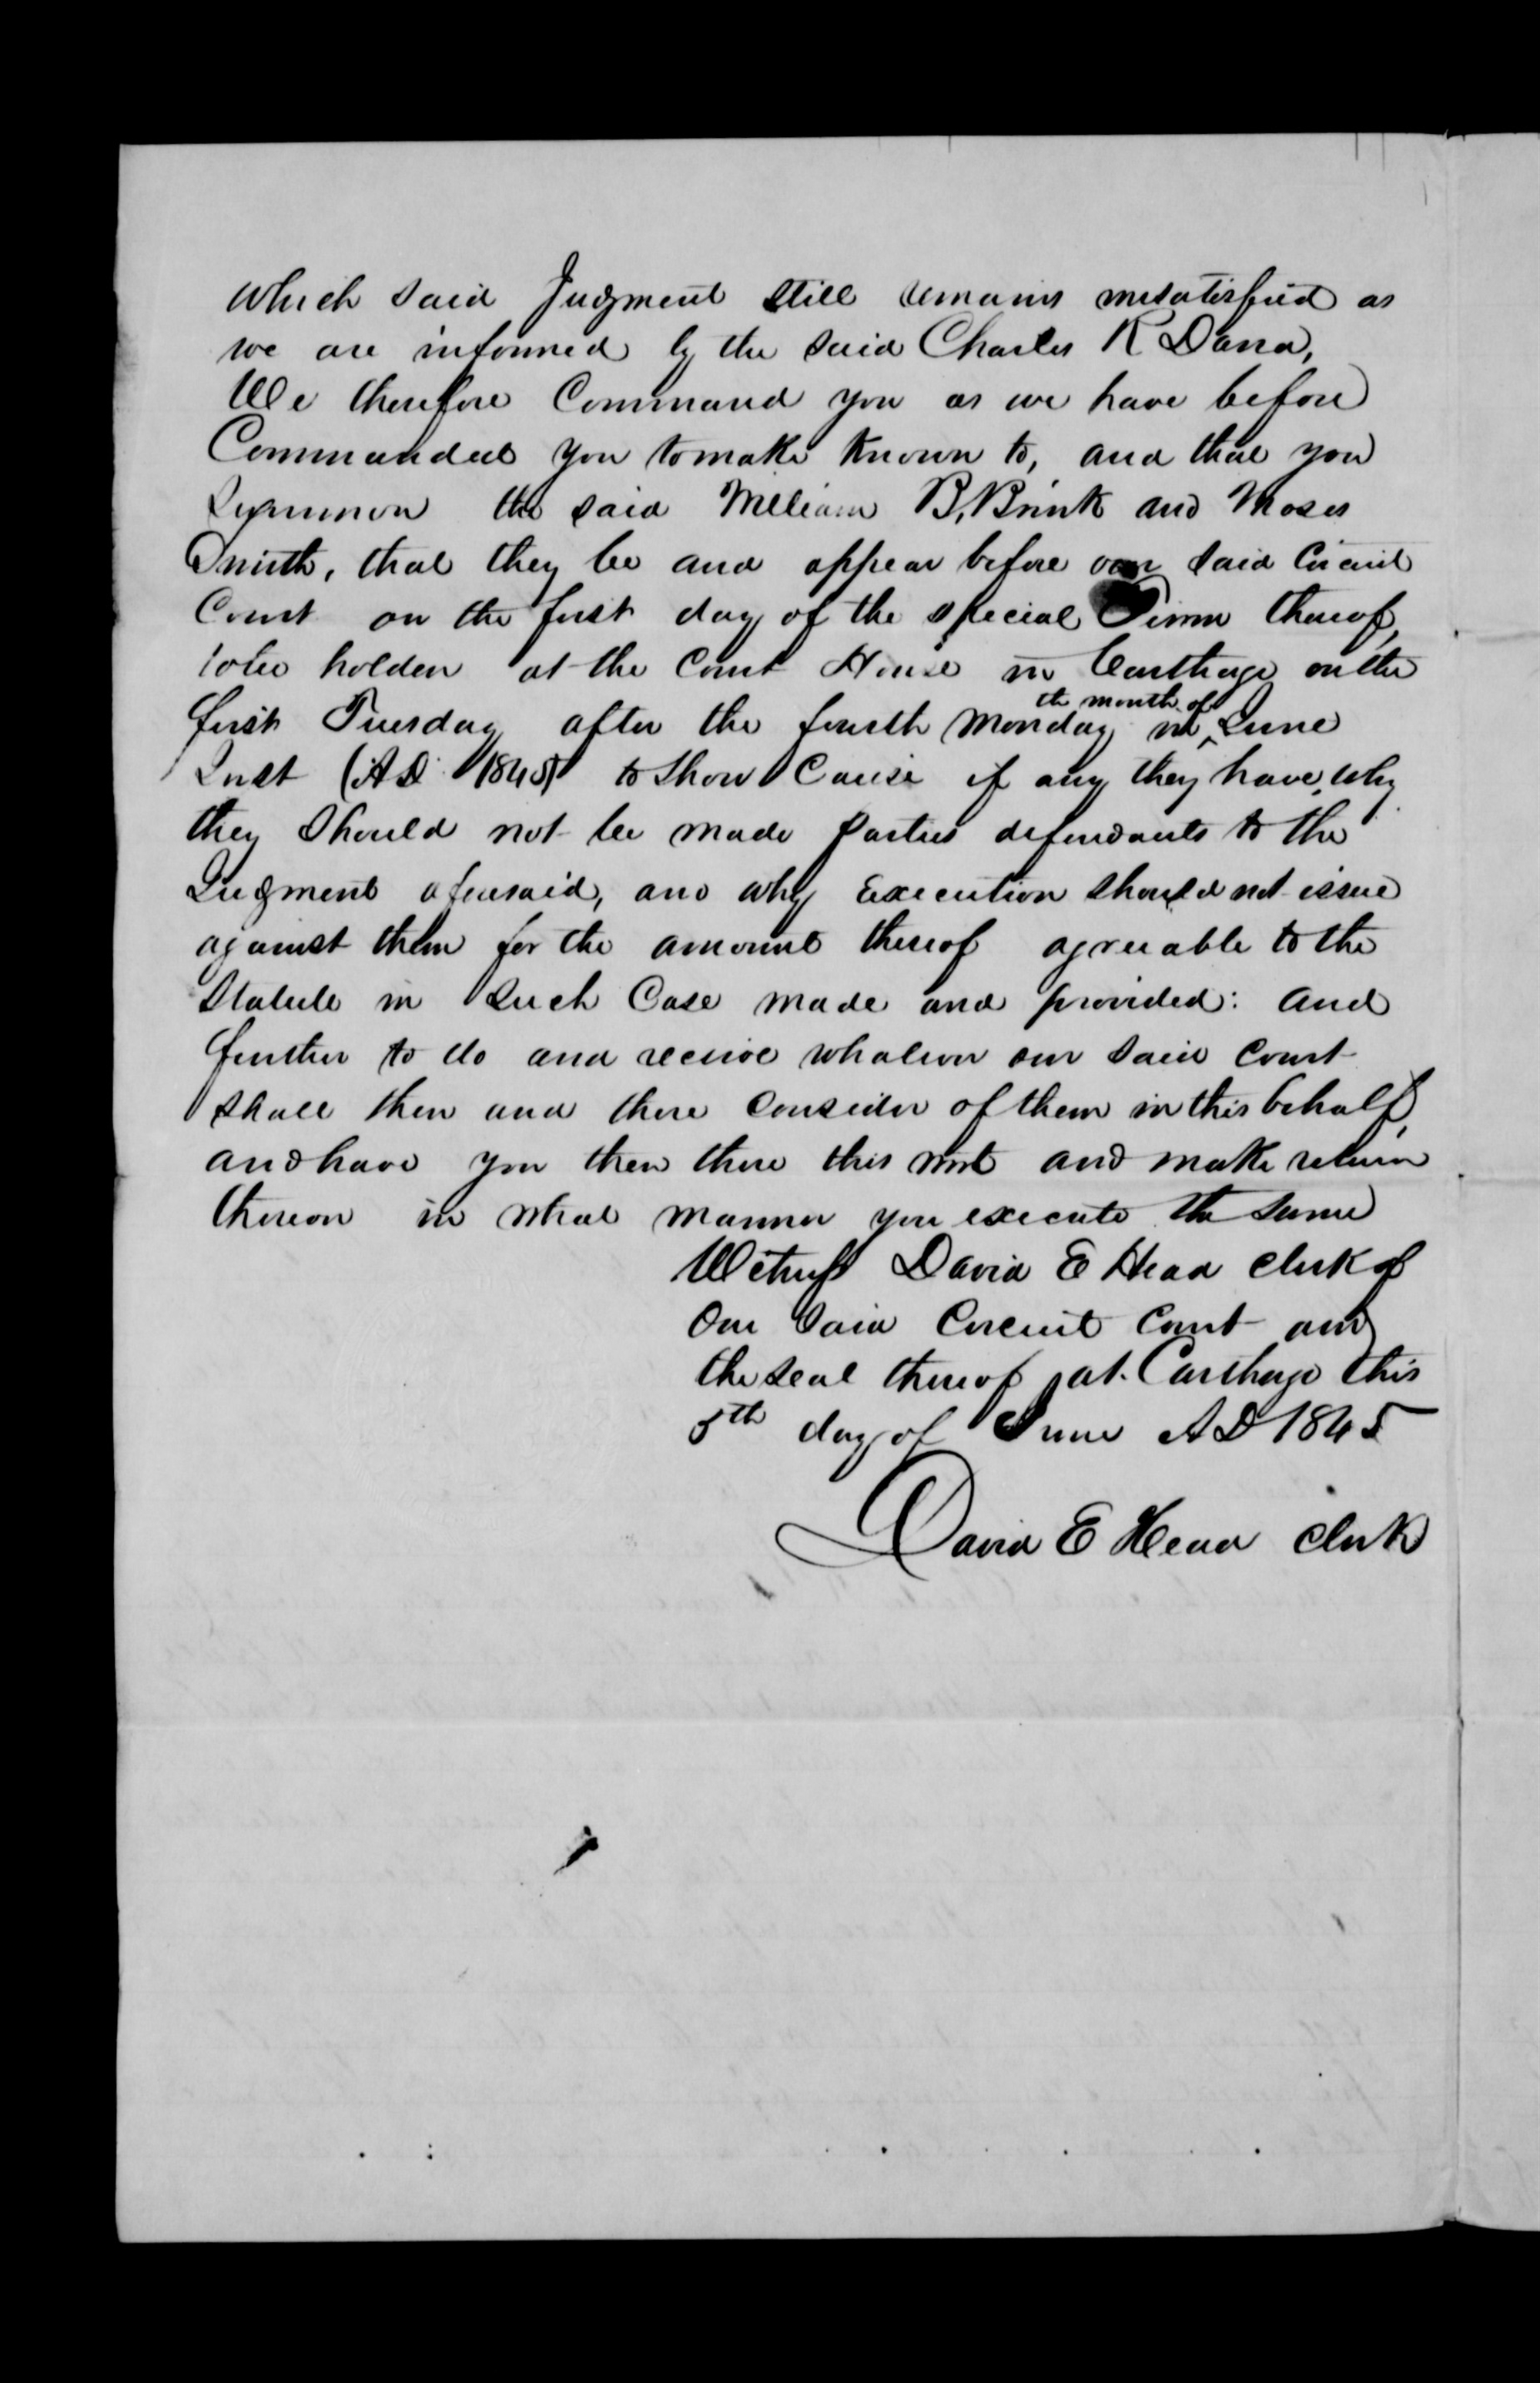 which said Judgment still remains unsatisfied as
we are informed by the said Charles R Dana,
We therefore Command you as we have before
Commanded you to make known to, and that you
Summon the said William B. Brink and Moses
Smith, that they be and appear before our said Circuit
Court on the first day of the special Term thereof,
to be holden at the Court House in Carthage on the
first Tuesday after the fourth Monday in ^the month of^ June
Inst (AD 1845) to show Cause if any they have, why
they should not be made parties defendants to the
Judgment aforesaid, and why Execution should not issue
against them for the amount thereof agreeable to the
Statute in such Case made and provided: and
further to do and receive whatever our said Court
shall then and there consider of them in this behalf,
and have you then there this writ and make return
thereon in what manner you execute the same
Witness David E Head Clerk of
Our said Circuit Court and
the seal thereof, at Carthage this
5th day of June AD 1845
David E Head Clerk